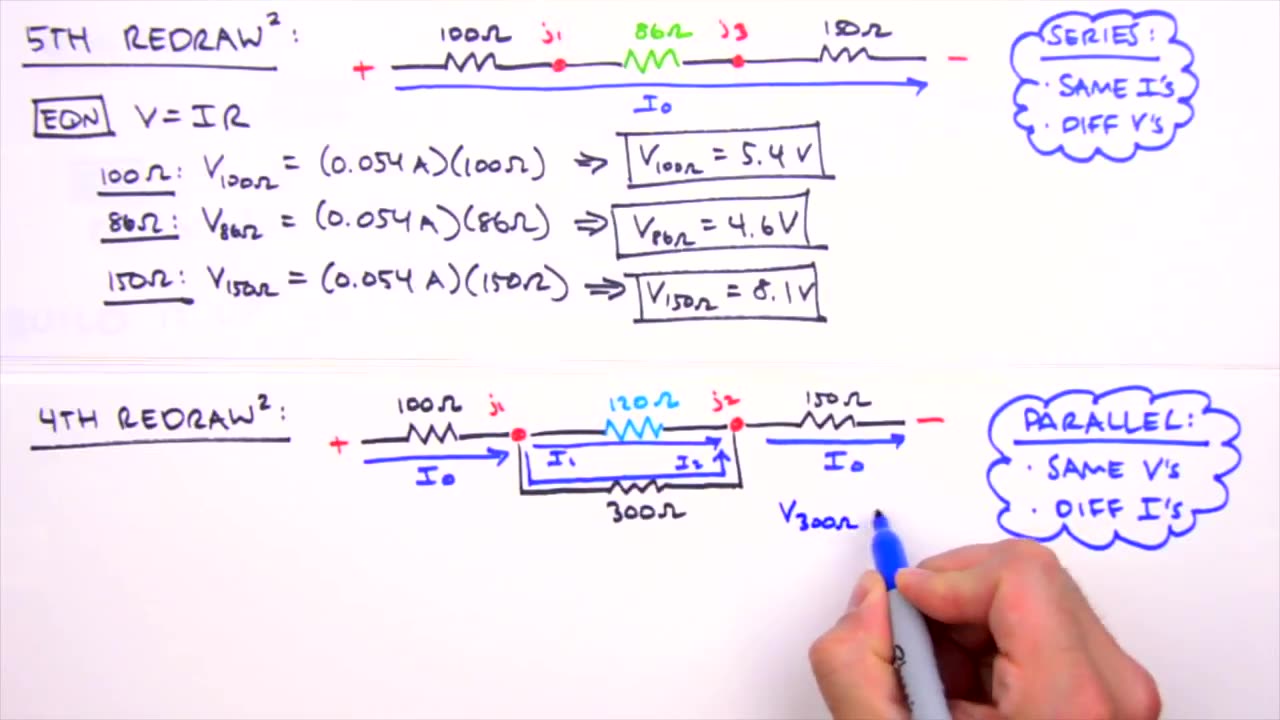 5TH REDRAW²:
100Ω j₁ 86Ω j₃ 150Ω
+ −
I₀
SERIES:
· SAME I's
· DIFF V's
EQN V = IR
100Ω: V100Ω = (0.054A)(100Ω) ⇒ V100Ω = 5.4V
86Ω: V86Ω = (0.054A)(86Ω) ⇒ V86Ω = 4.6V
150Ω: V150Ω = (0.054A)(150Ω) ⇒ V150Ω = 8.1V
4TH REDRAW²:
100Ω j₁ 120Ω j₂ 150Ω
+ −
I₀ I₁ I₂ I₀
300Ω
V300Ω
PARALLEL:
· SAME V's
· DIFF I's